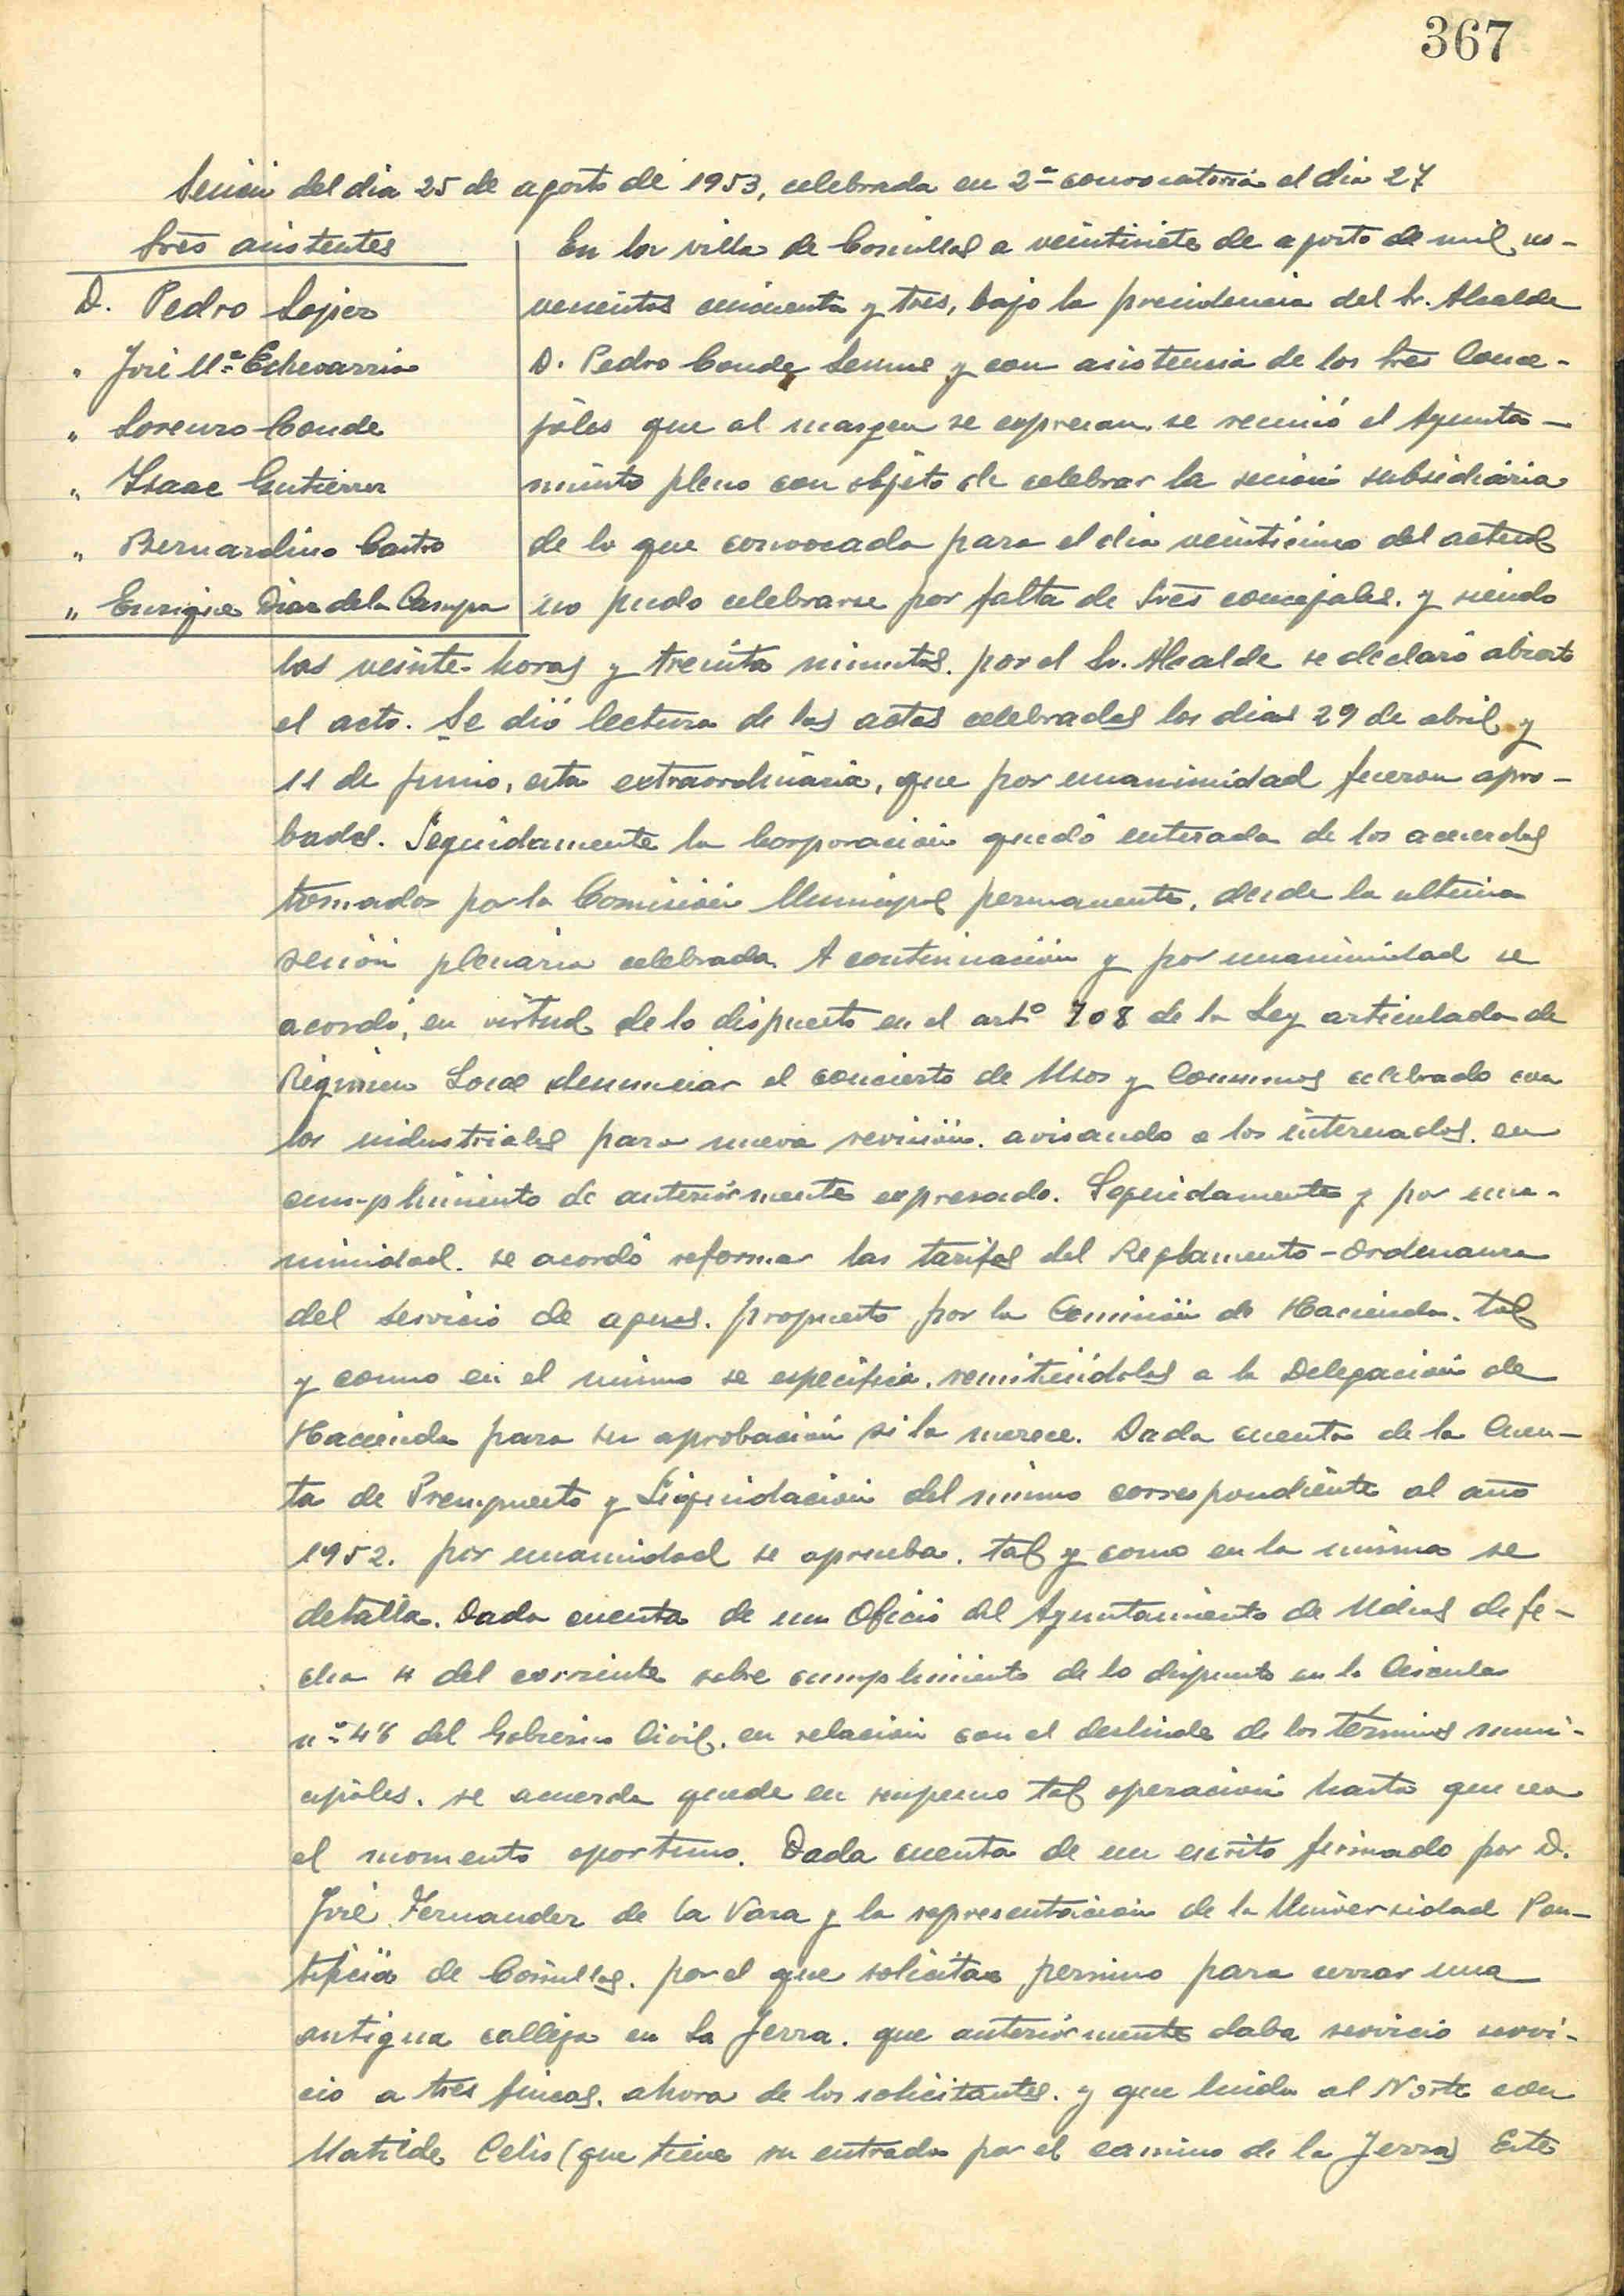 367
Sesión del dia 25 de agosto de 1953, celebrada en 2ª convocatoria el dia 27
Sres asistentes
D. Pedro Lopez
" José Mª Echevarria
" Lorenzo Conde
" Isaac Gutierrez
" Bernardino Castro
" Enrique Diaz de la Campa
En la villa de Comillas a veintisiete de agosto de mil no-
vecientos cincuenta y tres, bajo la presidencia del Sr. Alcalde
D. Pedro Conde y con asistencia de los Sres Conce-
jales que al margen se expresan, se reunió el Ayunta-
miento pleno con objeto de celebrar la sesión subsidiaria
de la que convocada para el dia veinticinco del actual
no pudo celebrarse por falta de Sres concejales. y siendo
las veinte horas y treinta minutos. por el Sr. Alcalde se declaró abierto
el acto. Se dió lectura de las actas celebradas los dias 29 de abril y
11 de junio, esta extraordinaria, que por unanimidad fueron apro-
badas. Seguidamente la Corporación quedó enterada de los acuerdos
tomados por la Comisión Municipal permanente, desde la ultima
sesión plenaria celebrada. A continuación y por unanimidad se
acordó, en virtud de lo dispuesto en el artº 708 de la Ley articulada de
Régimen Local denunciar el concierto de Usos y Consumos celebrado con
los industriales para nueva revisión. avisando a los interesados. en
cumplimiento de anteriormente expresado. Seguidamente y por una-
nimidad. se acordó reformar las tarifas del Reglamento-Ordenanza
del servicio de aguas. propuesto por la Comisión de Hacienda. tal
y como en el mismo se especifica. remitiéndolas a la Delegación de
Hacienda para su aprobación si la merece. Dada cuenta de la Cuen-
ta de Presupuesto y Liquidación del mismo correspondiente al año
1952. por unamidad se aprueba. tal y como en la misma se
detalla. Dada cuenta de un Oficio del Ayuntamiento de Udias de fe-
cha 4 del corriente sobre cumplimiento de lo dispuesto en la Circular
nº 48 del Gobierno Civil. en relación con el deslinde de los términos muni-
cipales. se acuerda quede en suspenso tal operación hasta que sea
el momento oportuno. Dada cuenta de un escrito firmado por D.
José Fernandez de la Vara y la representación de la Universidad Pon-
tificia de Comillas. por el que solicitan permiso para cerrar una
antigua calleja en La Jerra. que anteriormente daba servicio servi-
cio a tres fincas. ahora de los solicitantes. y que linda al Norte con
Matilde Celis (que tiene su entrada por el camino de la Jerra) Este